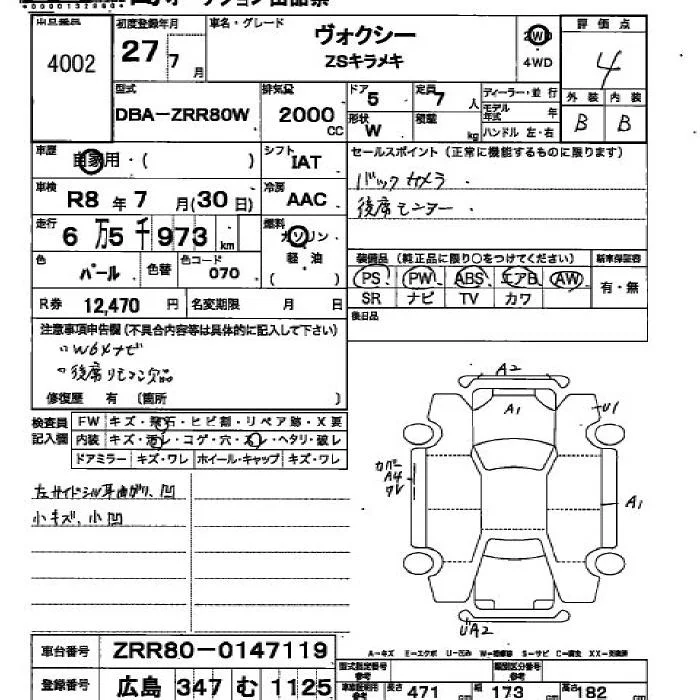 4002
初度登録年月 27 7 月
車名・グレード ヴォクシー
ZSキラメキ
2WD
4WD
評価点 4
型式 DBA-ZRR80W
排気量 2000 CC
ドア 5
形状 W
定員 7 人
積載 kg
ディーラー・並行
モデル年式 年
ハンドル 左・右
外装 内装
B B
車歴 自家用・( )
シフト IAT
セールスポイント(正常に機能するものに限ります)
バックカメラ
後席モニター
車検 R8 年 7 月(30日)
冷房 AAC
走行 6万5千973 km
燃料 ガソリン
軽・油
( )
色 パール 色替 色コード 070
装備品(純正品に限り○をつけてください) 新車保証書
PS PW ABS エアB AW
SR ナビ TV カワ
有・無
R券 12,470 円 名変期限 月 日
後日品
注意事項申告欄(不具合内容等は具体的に記入して下さい)
後席リモコン欠品
修復歴 有 (箇所 )
検査員記入欄
FW キズ・飛石・ヒビ割・リペア跡・X要
内装 キズ・汚レ・コゲ・穴・スレ・ヘタリ・破レ
ドアミラー キズ・ワレ ホイール・キャップ キズ・ワレ
左サイドシル耳曲がり、凹
小キズ、小凹
A2
A1
U1
カバー
A4
ワレ
A1
UA2
A-キズ E-エクボ U-凹み W-補修跡 S-サビ C-腐食 XX-交換済
車台番号 ZRR80-0147119
登録番号 広島 347 む 1125
型式指定番号 参考
類別区分番号 参考
長さ 471 cm 幅 173 cm 高さ 182 cm